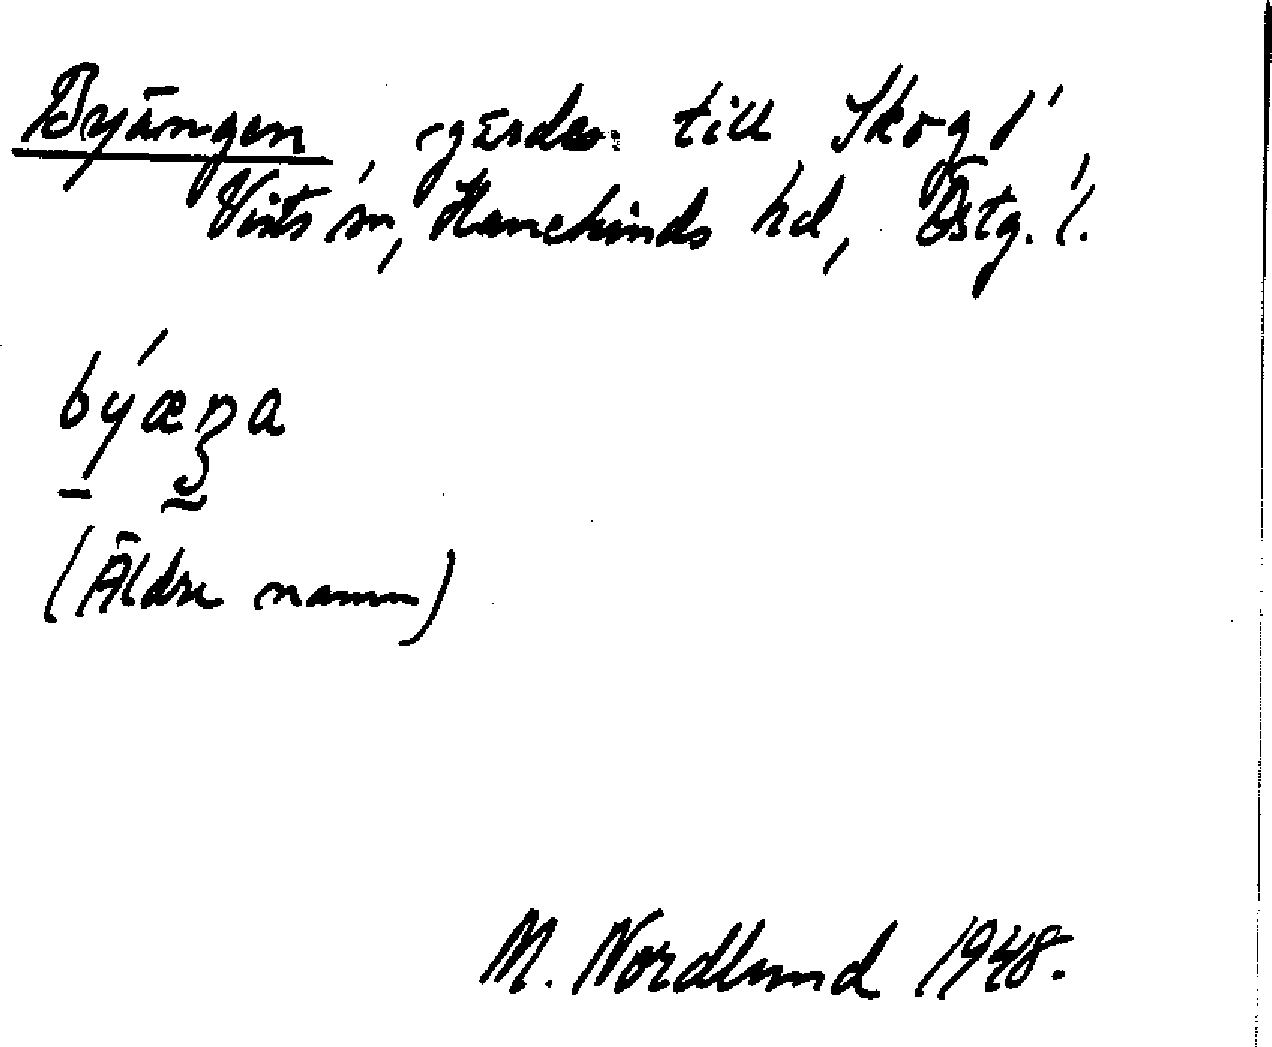 Byängen, gärde till Skog i
Vists sn, Hanekinds hd, Östg. l.
býæŋa
(Äldre namn)
M. Nordlund 1948.